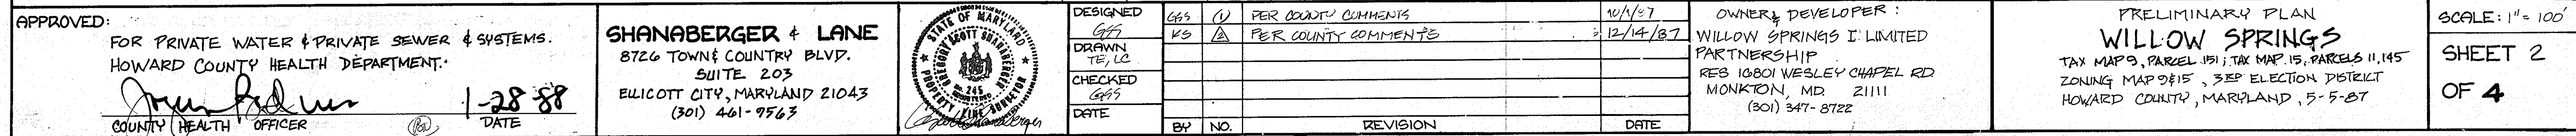 APPROVED:
FOR PRIVATE WATER & PRIVATE SEWER & SYSTEMS.
HOWARD COUNTY HEALTH DEPARTMENT.
1-28-88
COUNTY HEALTH OFFICER
DATE
SHANABERGER & LANE
8726 TOWN & COUNTRY BLVD.
SUITE 203
ELLICOTT CITY, MARYLAND 21043
(301) 461-9563
STATE OF MARYLAND
GREGORY SCOTT SHANABERGER
NO. 245
PROPERTY LINE SURVEYOR
DESIGNED
GSS
DRAWN
TE, LC
CHECKED
GSS
DATE
GSS 1 PER COUNTY COMMENTS 10/1/87
KS 2 PER COUNTY COMMENTS 12/14/87
BY NO. REVISION DATE
OWNER & DEVELOPER:
WILLOW SPRINGS I LIMITED
PARTNERSHIP
RES 16801 WESLEY CHAPEL RD.
MONKTON, MD. 21111
(301) 347-8722
PRELIMINARY PLAN
WILLOW SPRINGS
TAX MAP 9, PARCEL 151; TAX MAP 15, PARCELS 11, 145
ZONING MAP 9&15, 3RD ELECTION DISTRICT
HOWARD COUNTY, MARYLAND, 5-5-87
SCALE: 1" = 100'
SHEET 2
OF 4